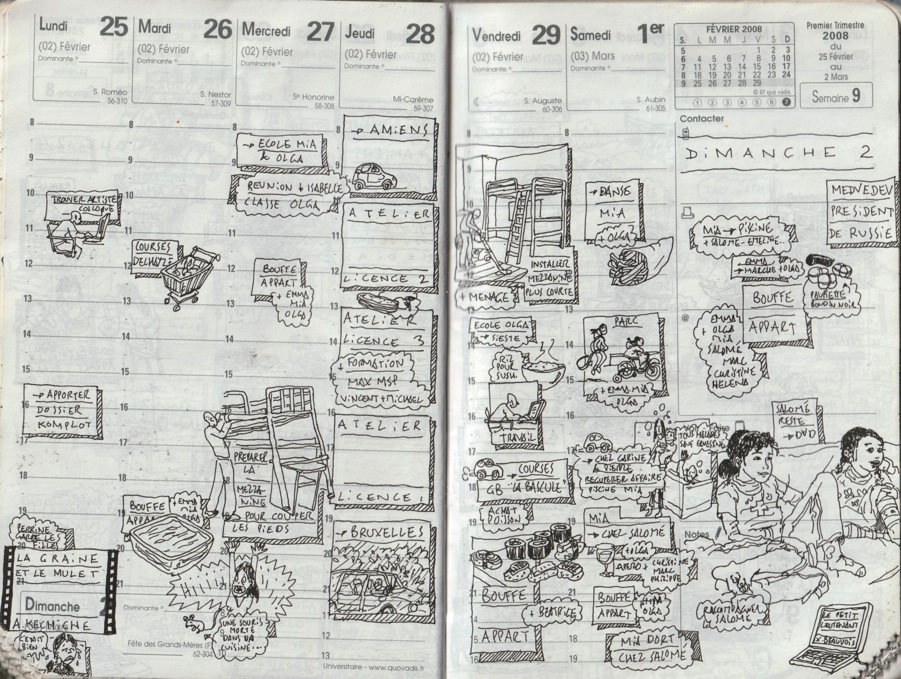 Lundi 25
(02) Février
Dominante
S. Roméo
56-310
TROUVER ARTISTE
COLLOQUE
→ APPORTER
DOSSIER
KOMPLOT
LES
FILLES
LA GRAINE
ET LE MULET
Dimanche
A. KECHICHE
BIEN
Mardi 26
(02) Février
Dominante
S. Nestor
57-309
COURSES
DELHAIZE
BOUFFE
APPART
+ EMMA
MIA
OLGA
Dominante
Fête des Grands-Mères
62-304
Mercredi 27
(02) Février
Dominante
Ste Honorine
58-308
→ ECOLE MIA
& OLGA
REUNION + ISABELLE
CLASSE OLGA
BOUFFE
APPART
+ EMMA
MIA
OLGA
PREPARER
LA
MEZZA
NINE
→ POUR COUPER
LES PIEDS
UNE SOURIS
MORTE
DANS LA
CUISINE...
Jeudi 28
(02) Février
Dominante
Mi-Carême
59-307
→ AMIENS
ATELIER
LICENCE 2
ATELIER
LICENCE 3
+ FORMATION
MAX MSP
VINCENT + MICHAEL
ATELIER
LICENCE 1
→ BRUXELLES
Universitaire - www.quovadis.fr
Vendredi 29
(02) Février
Dominante
S. Auguste
60-306
INSTALLER
MEZZANINE
PLUS COURTE
+ MENAGE
ECOLE OLGA
→ SIESTE
RIZ
POUR
SUSU
TRAVAIL
→ COURSES
GB "LA BASCULE"
ACHAT
POISSON
BOUFFE
+ BEATRICE
APPART
Samedi 1er
(03) Mars
Dominante
S. Aubin
61-305
→ DANSE
MIA
+ OLGA
PARC
+ EMMA MIA
OLGA
→ CHEZ CARINE
& PIERRE
RECUPERER AFFAIRE
PISCINE MIA
MIA
→ CHEZ SALOME
+ OLGA
APERO + CHRISTINE
MARC
PHILIPPE
BOUFFE
APPART
+ EMMA
OLGA
MIA DORT
CHEZ SALOME
FÉVRIER 2008
S. L M M J V S D
5 1 2 3
6 4 5 6 7 8 9 10
7 11 12 13 14 15 16 17
8 18 19 20 21 22 23 24
9 25 26 27 28 29
① ② ③ ④ ⑤ ⑥ ⑦
Premier Trimestre
2008
du
25 Février
au
2 Mars
Semaine 9
Contacter
DIMANCHE 2
MEDVEDEV
PRESIDENT
DE RUSSIE
MIA → PISCINE
+ SALOME - EMELINE...
EMMA
→ MARCHE + OLGA
BOUFFE
APPART
EMMA
+ OLGA
MIA
SALOME
MARC
CHRISTINE
HELENA
BOUDIN NOIR
@
SALOME
RESTE
→ DVD
TOUS MALADES
Notes
RACCOMPAGNER
SALOME
LE PETIT
LIEUTENANT
X. BEAUVOIS